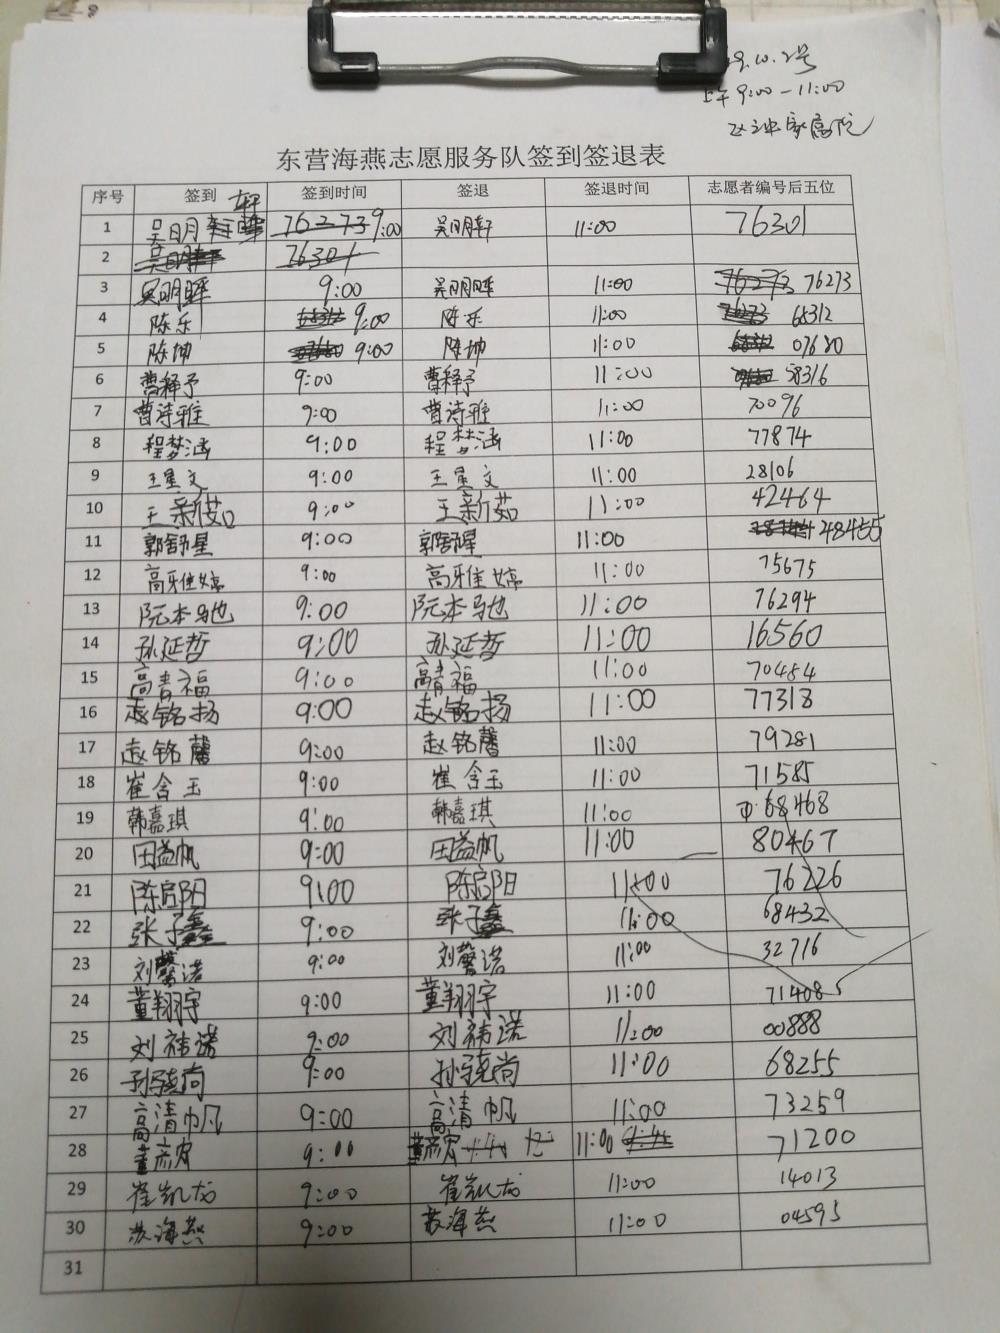 9.10.2号
上午9:00-11:00
东营海燕志愿服务队签到签退表
序号 签到 签到时间 签退 签退时间 志愿者编号后五位
1 吴明轩 9:00 吴明轩 11:00 76301
2 吴明轩 76301
3 吴明晖 9:00 吴明晖 11:00 76273 76273
4 陈乐 9:00 陈乐 11:00 76273 68312
5 陈坤 9:00 陈坤 11:00 07680
6 曹释予 9:00 曹释予 11:00 58316
7 曹诗雅 9:00 曹诗雅 11:00 70096
8 程梦涵 9:00 程梦涵 11:00 77874
9 王星文 9:00 王星文 11:00 28106
10 王新茹 9:00 王新茹 11:00 42464
11 郭舒星 9:00 郭舒星 11:00 48455
12 高雅婕 9:00 高雅婕 11:00 75675
13 阮本驰 9:00 阮本驰 11:00 76294
14 孙延哲 9:00 孙延哲 11:00 16560
15 高青福 9:00 高青福 11:00 70484
16 赵铭扬 9:00 赵铭扬 11:00 77318
17 赵铭馨 9:00 赵铭馨 11:00 79281
18 崔含玉 9:00 崔含玉 11:00 71585
19 韩嘉琪 9:00 韩嘉琪 11:00 68468
20 田益帆 9:00 田益帆 11:00 80467
21 陈启阳 9:00 陈启阳 11:00 76226
22 张子鑫 9:00 张子鑫 11:00 68432
23 刘馨诺 9:00 刘馨诺 11:00 32716
24 董翔宇 9:00 董翔宇 11:00 71408
25 刘祎诺 9:00 刘祎诺 11:00 00888
26 孙骁尚 9:00 孙骁尚 11:00 68255
27 高清帆 9:00 高清帆 11:00 73259
28 董彦宏 9:00 董彦宏 11:00 71200
29 崔凯龙 9:00 崔凯龙 11:00 14013
30 苏海燕 9:00 苏海燕 11:00 04595
31